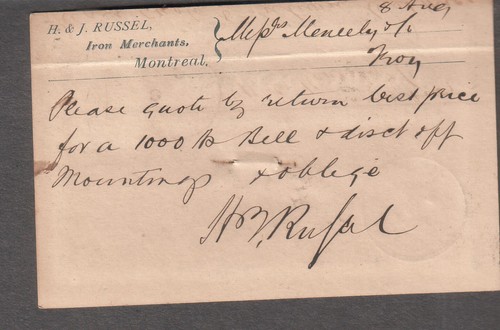 8 Aug
H. & J. RUSSEL,
Iron Merchants,
Montreal.
Messrs Meneely & Co
Troy
Please quote by return best price
for a 1000 lb Bell & disct off
Mountings & oblige
H & J Russel